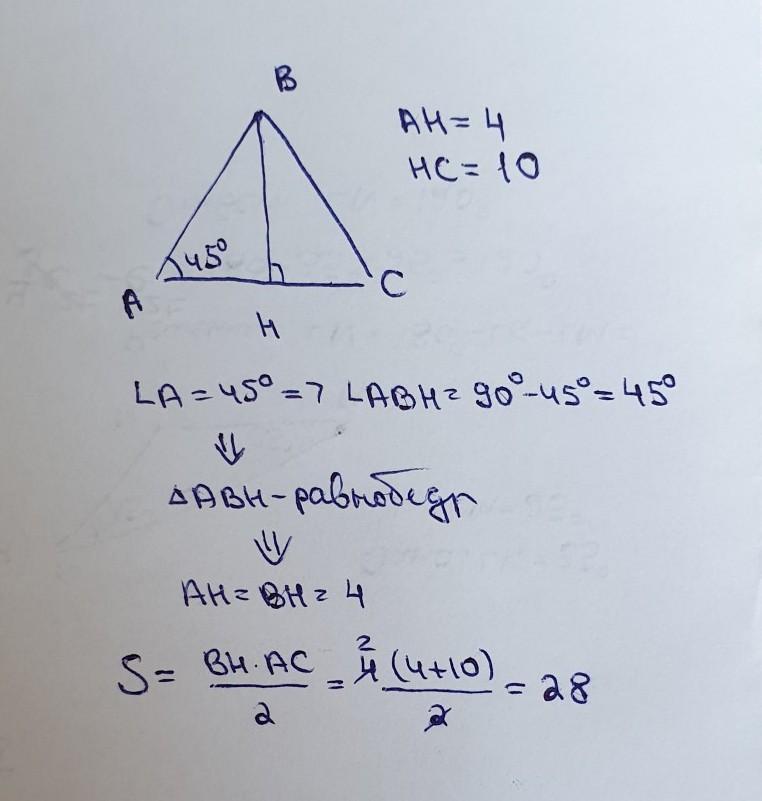 B
AH = 4
HC = 10
45°
A
H
C
∠A = 45° => ∠ABH = 90° - 45° = 45°
⇓
△ABH - равнобедр
⇓
AH = BH = 4
S = BH · AC / 2 = 4 2 (4+10) / 2 = 28